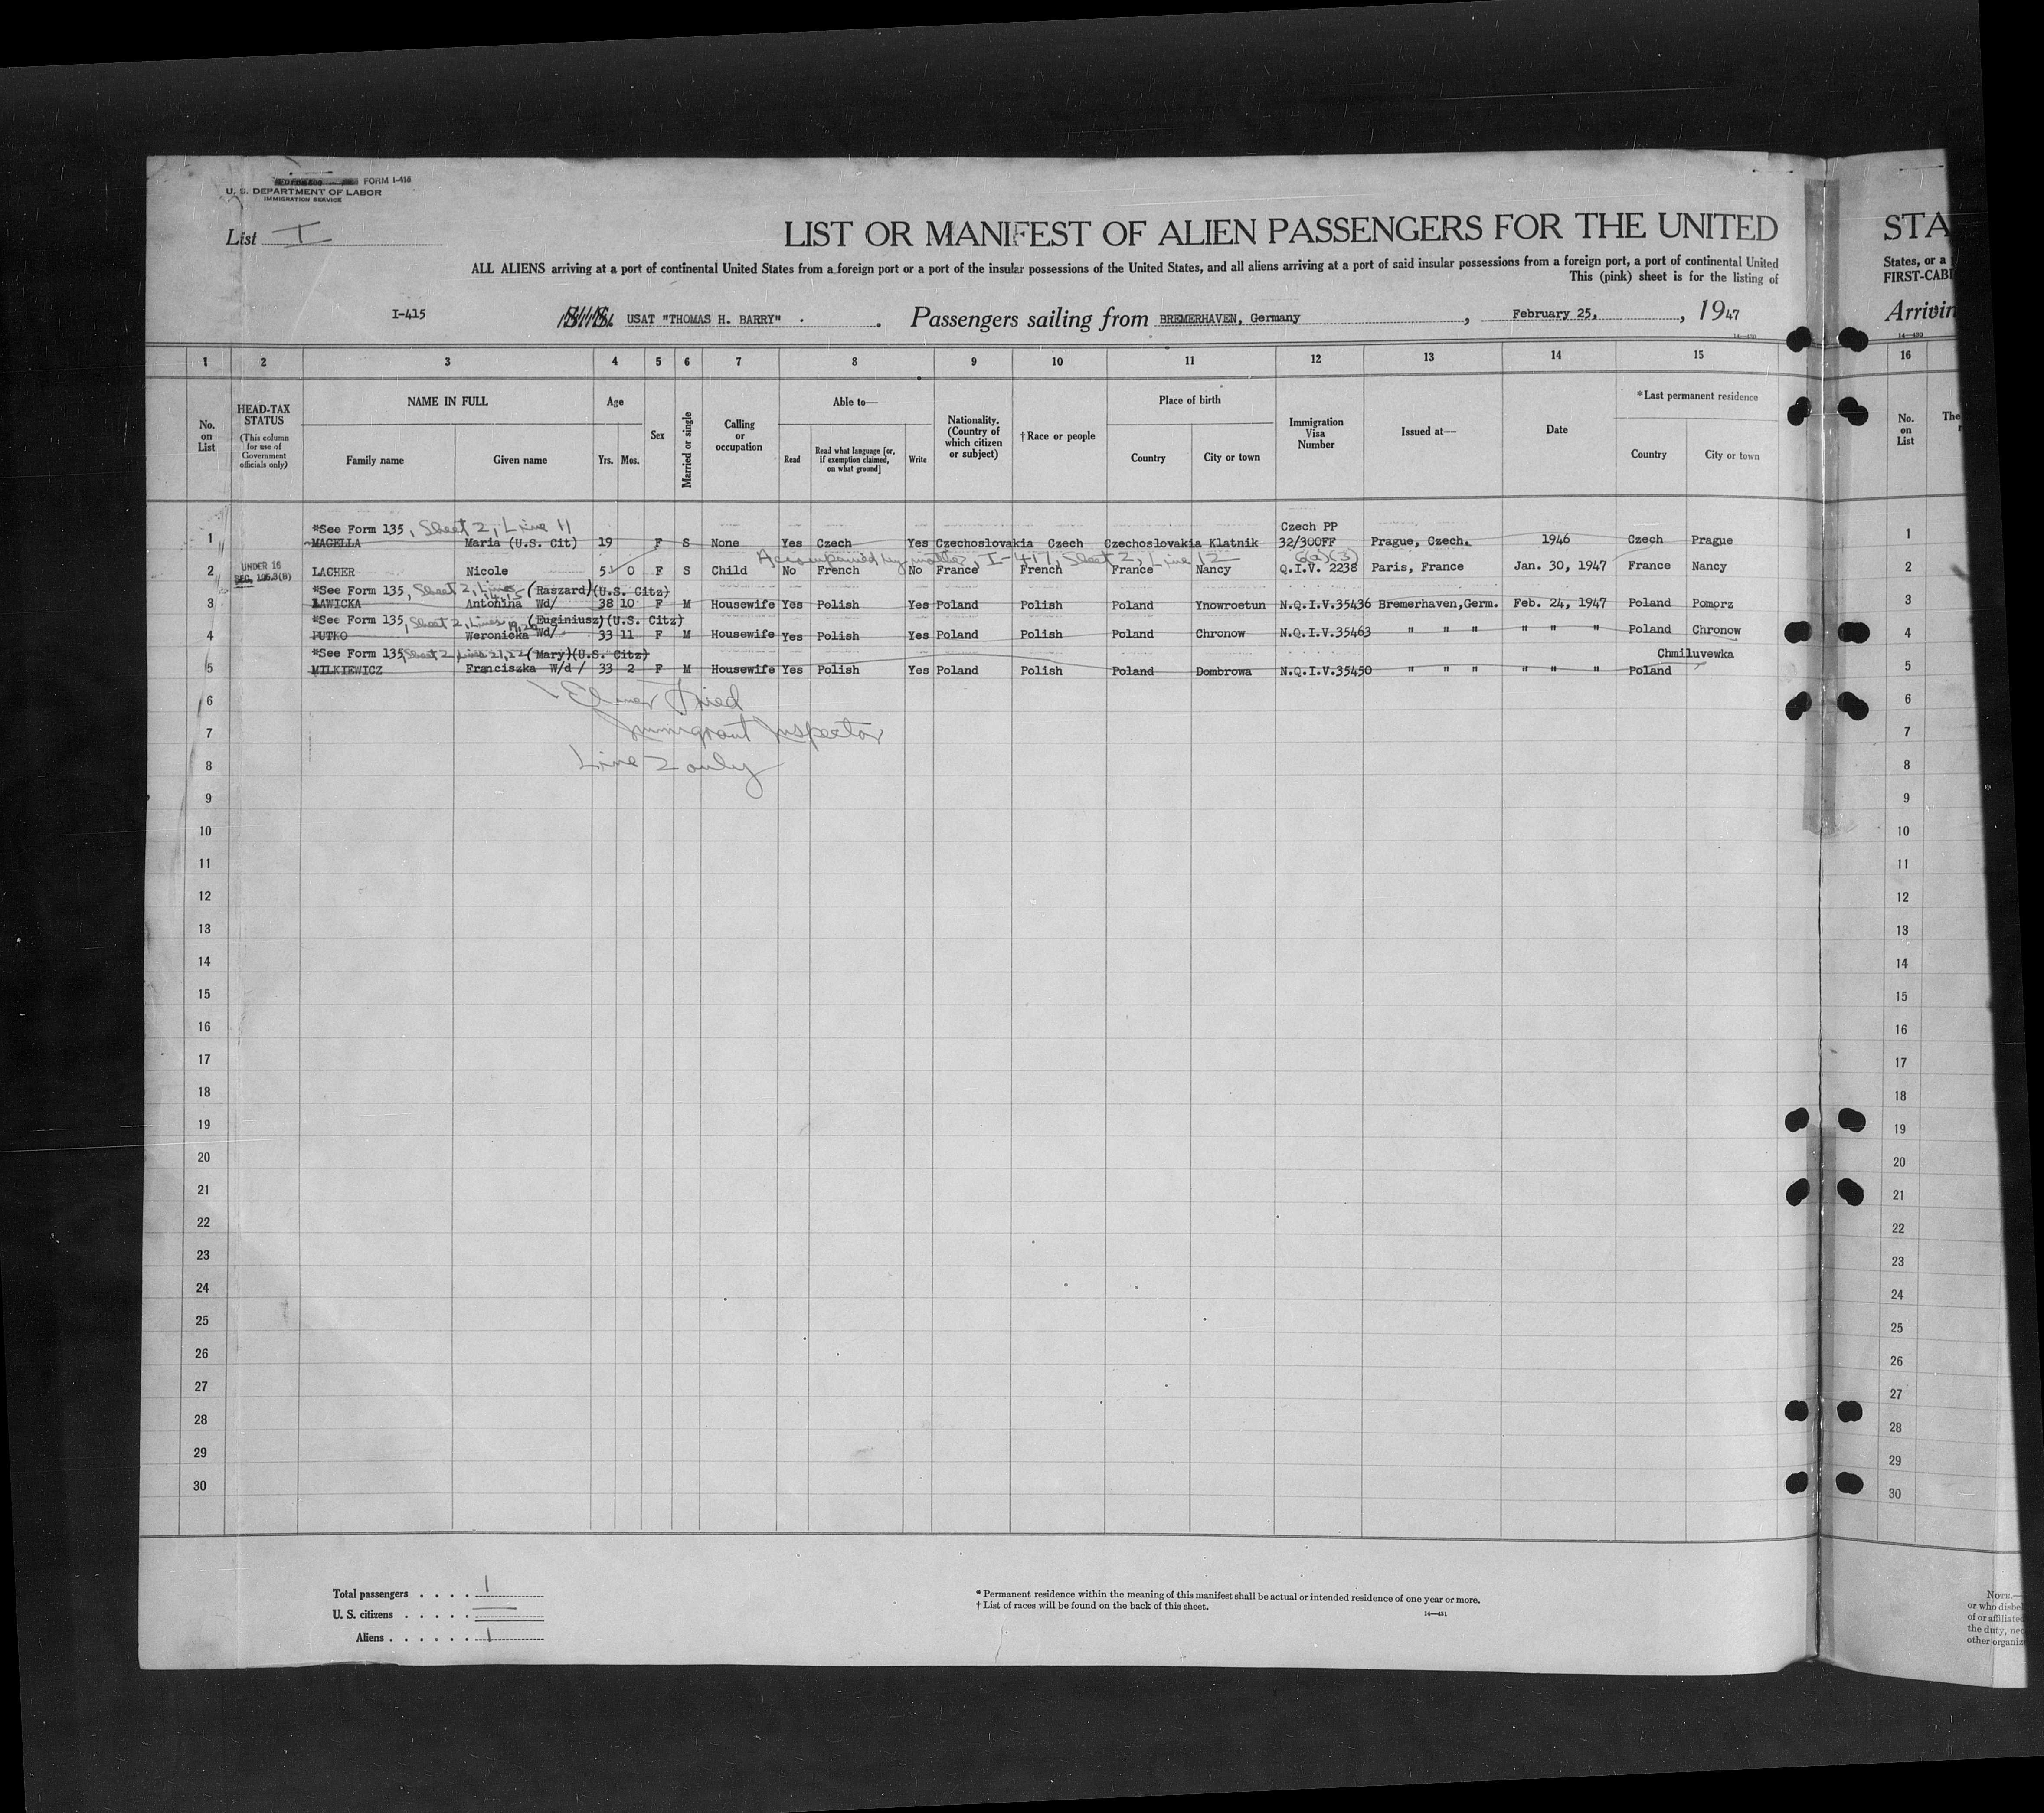 FORM I-415
U. S. DEPARTMENT OF LABOR
IMMIGRATION SERVICE
List I
LIST OR MANIFEST OF ALIEN PASSENGERS FOR THE UNITED
STA
ALL ALIENS arriving at a port of continental United States from a foreign port or a port of the insular possessions of the United States, and all aliens arriving at a port of said insular possessions from a foreign port, a port of continental United
States, or a
This (pink) sheet is for the listing of
FIRST-CABI
I-415 USAT "THOMAS H. BARRY" . Passengers sailing from BREMERHAVEN, Germany, February 25, , 1947
Arrivin
14—430
1 2 3 4 5 6 7 8 9 10 11 12 13 14 15 16
No. on List
HEAD-TAX STATUS
(This column for use of Government officials only)
NAME IN FULL
Family name Given name
Age
Yrs. Mos.
Sex
Married or single
Calling or occupation
Able to—
Read
Read what language [or, if exemption claimed, on what ground]
Write
Nationality. (Country of which citizen or subject)
† Race or people
Place of birth
Country City or town
Immigration Visa Number
Issued at—
Date
*Last permanent residence
Country City or town
No. on List
The
*See Form 135, Sheet 2, Line 11 Czech PP
1 MAGELLA Maria (U.S. Cit) 19 F S None Yes Czech Yes Czechoslovakia Czech Czechoslovakia Klatnik 32/300FF Prague, Czech. 1946 Czech Prague 1
Accompanied by mother, I-417, Sheet 2, Line 12 6(a)(3)
UNDER 16
2 LACHER Nicole 5 0 F S Child No French No France French France Nancy Q.I.V. 2238 Paris, France Jan. 30, 1947 France Nancy 2
*See Form 135, Sheet 2, Lines 14,15 (Raszard)(U.S. Citz)
3 LAWICKA Antonina Wd/ 38 10 F M Housewife Yes Polish Yes Poland Polish Poland Ynowroetun N.Q.I.V.35436 Bremerhaven,Germ. Feb. 24, 1947 Poland Pomorz 3
*See Form 135, Sheet 2, Lines 19,20 (Euginiusz)(U.S. Citz)
4 PUTKO Weronicka Wd/ 33 11 F M Housewife Yes Polish Yes Poland Polish Poland Chronow N.Q.I.V.35463 " " " " " " Poland Chronow 4
*See Form 135, Sheet 2 Lines 21,22 (Mary)(U.S. Citz) Chmiluvewka
5 MILKIEWICZ Franciszka W/d / 33 2 F M Housewife Yes Polish Yes Poland Polish Poland Dombrowa N.Q.I.V.35450 " " " " " " Poland 5
6 Elmer Fried 6
7 Immigrant Inspector 7
8 Line 2 only 8
9 9
10 10
11 11
12 12
13 13
14 14
15 15
16 16
17 17
18 18
19 19
20 20
21 21
22 22
23 23
24 24
25 25
26 26
27 27
28 28
29 29
30 30
Total passengers . . . . 1
U. S. citizens . . . . .
Aliens . . . . . . 1
* Permanent residence within the meaning of this manifest shall be actual or intended residence of one year or more.
† List of races will be found on the back of this sheet.
14—431
NOTE.—
or who disbel
of or affiliated
the duty, nec
other organiz